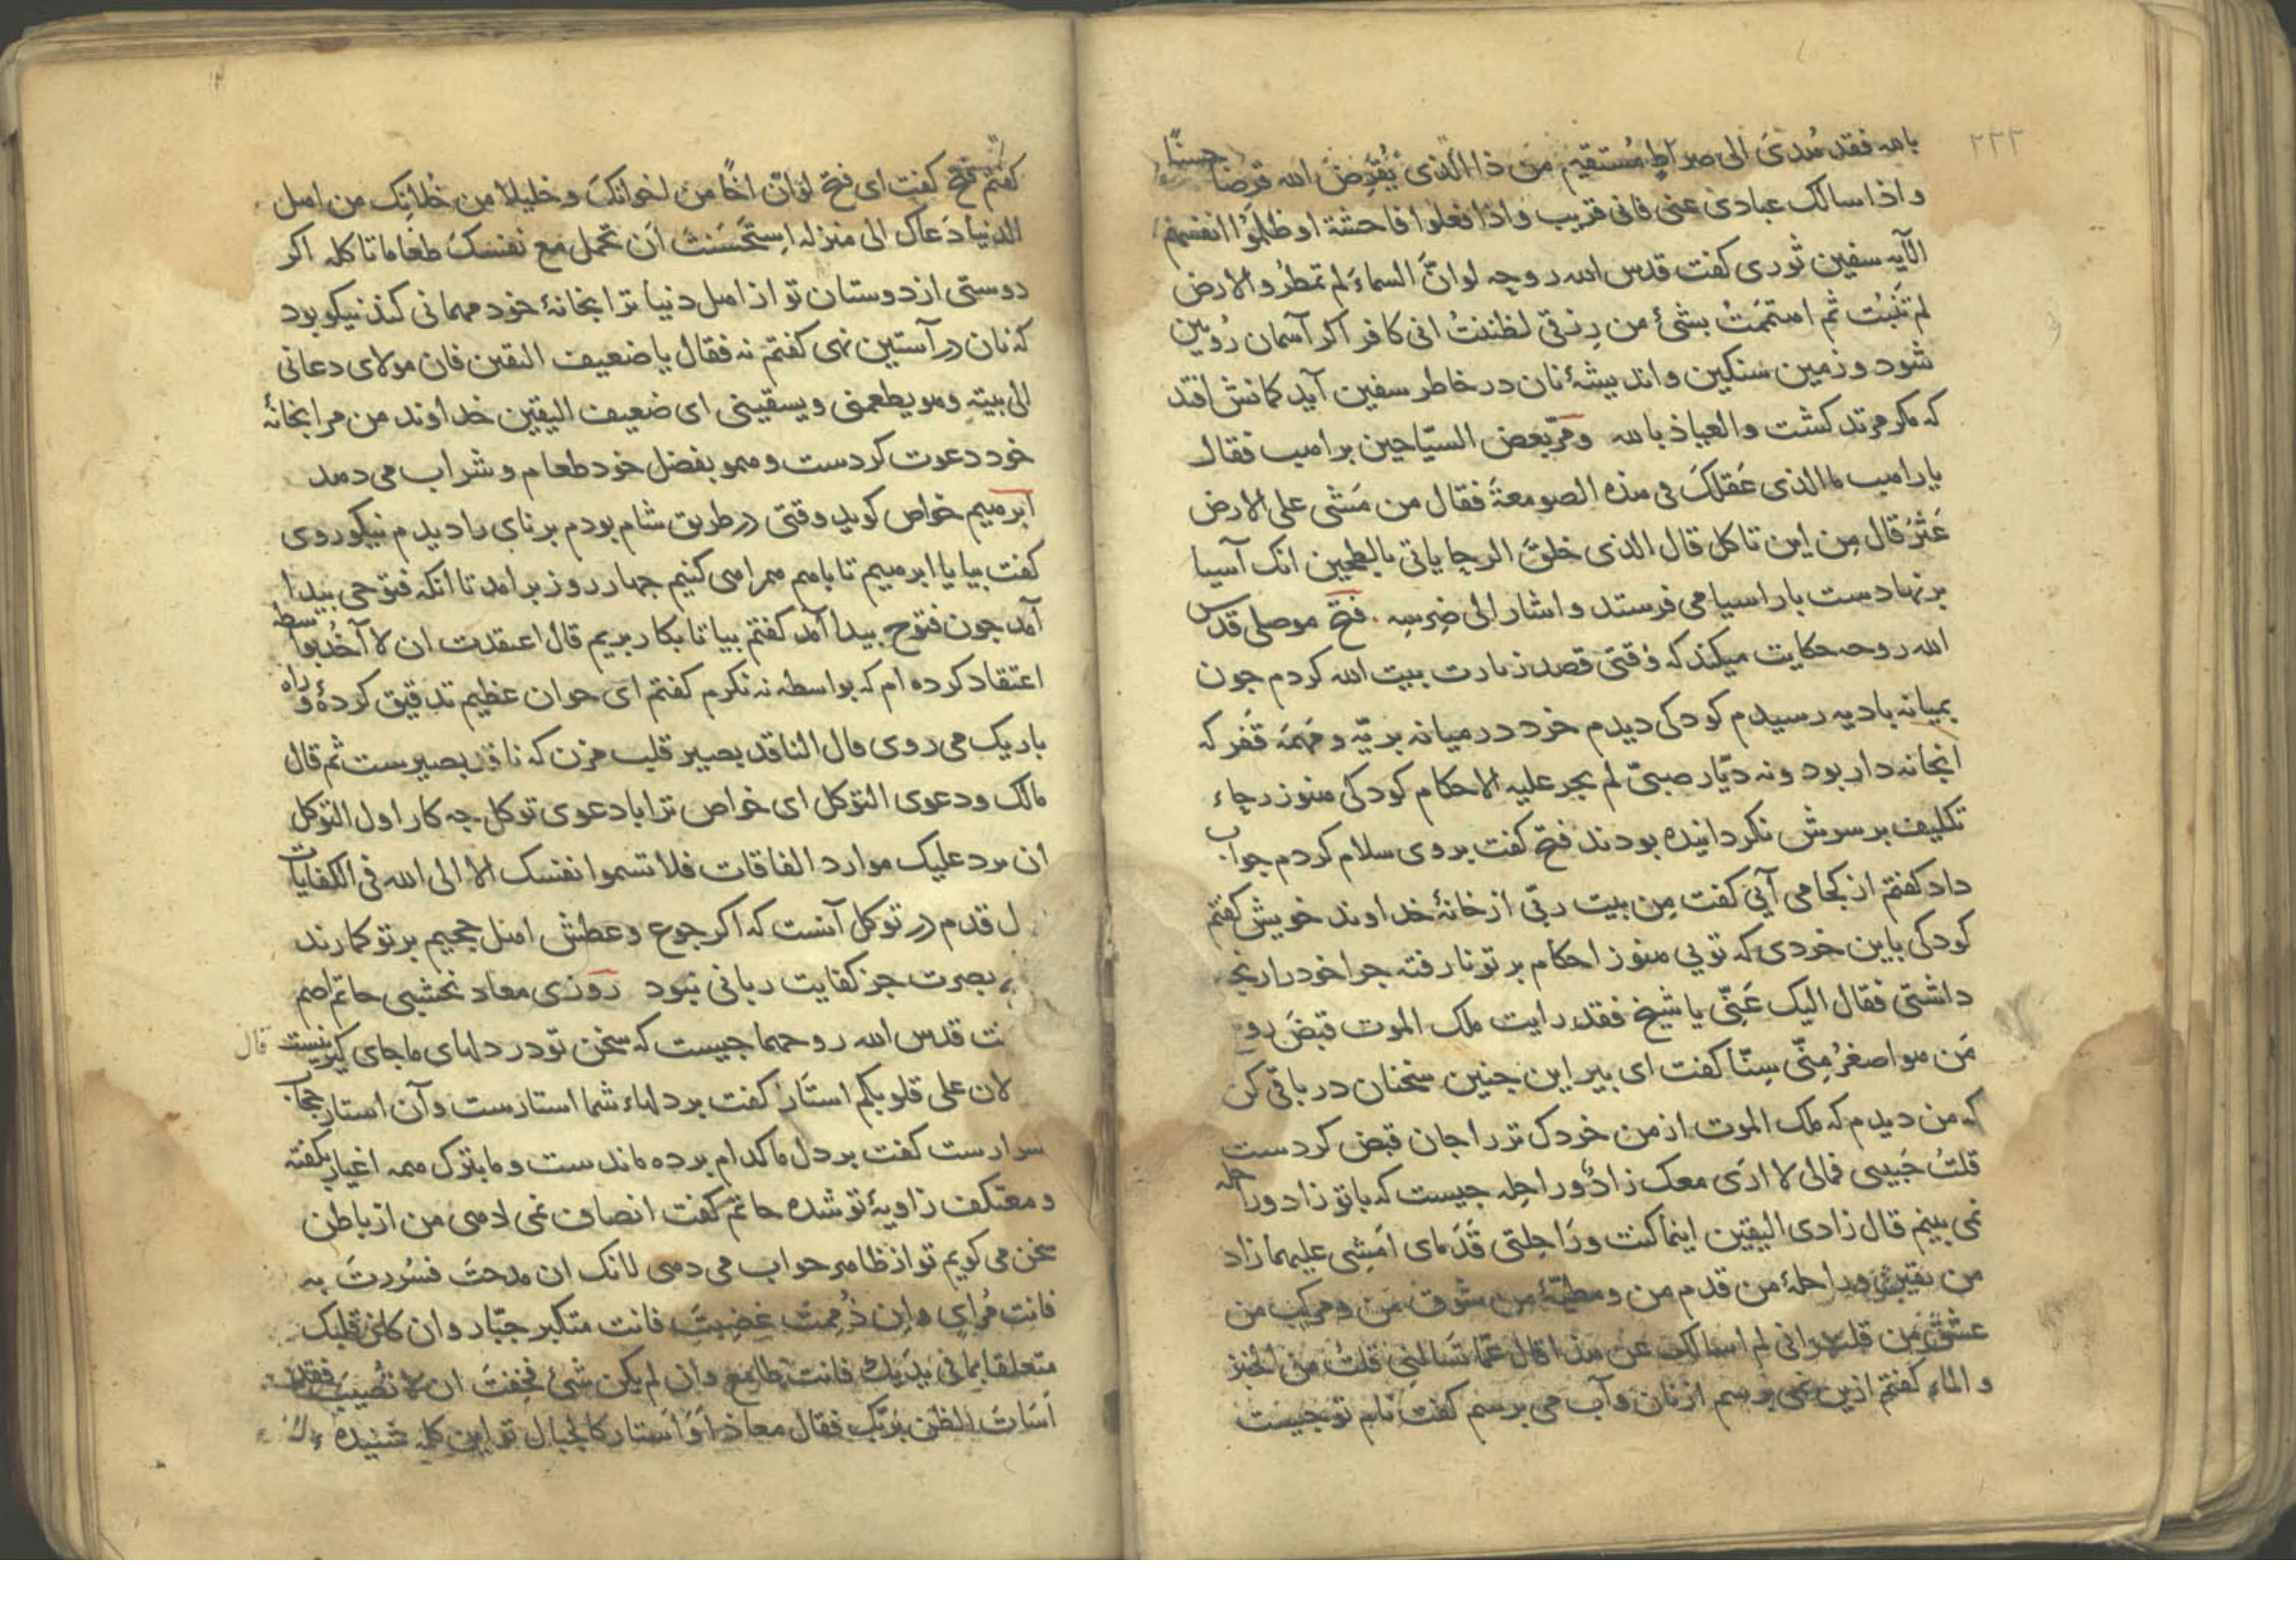 ۲۲۲
بالله فقد هُدیَ الی صراطٍ مُستقیم مَن ذا الّذی یُقرِضُ الله قرضًا حسنًا
واذا سالک عبادی عنی فانی قریب واذا فعلوا فاحشة او ظلمُوا انفسهم
الآیه سفین ثوری کفت قدس الله روحه لوانَّ السماءَ لم تمطرُ والارض
لم تَنبُت ثم اهتممتُ بشیٔ من رِزقی لظننتُ انی کافر اکر آسمان رُویین
شود و زمین سنکین واندیشهٔ نان در خاطر سفین آید کمانش افتد
که مکر مرتد کشت والعیاذ بالله ومرّ بعض السیّاحین براهب فقال
یا راهب ماالذی عَقلکَ فی هذه الصومعةَ فقال من مَشی علی الارض
عَثرَ قال مِن این تاکل قال الذی خلقَ الرحا یاتی بالطحین انک آسیا
بر نهادست بار اسیا می فرستد واشار الی ضِرسِه . فتح موصلی قدس
الله روحه حکایت میکند که وقتی قصد زیارت بیت الله کردم جون
بمیانه بادیه رسیدم کودکی دیدم خرد در میانه بریّه و مَهمَه قَفر که
انجا نه دار بود ونه دیّار صبیّ لم یجر علیه الاحکام کودکی هنوز رجاء
تکلیف بر سرش نکردانیده بودند فتح کفت بروی سلام کردم جواب
داد کفتم از کجا می آیی کفت مِن بیت ربّی از خانهٔ خداوند خویش کفتم
کودکی باین خردی که تویی هنوز احکام بر تو نارفته جرا خود را رنجه
داشتی فقال الیک عَنّی یا شیخ فقد رایت ملک الموت قبضَ رو
مَن هو اصغرُ مِنّی سِنّا کفت ای بیر این جنین سخنان در باقی کن
که من دیدم که ملک الموت از من خردک تر را جان قبض کردست
قلتُ حَبیبی فمالی لا اری معک زادٌ وراحِله جیست که با تو زاد وراحله
نمی بینم قال زادی الیقین اینما کنت ورَاحِلتی قَدَمای اَمشِی علیهما زاد
من یقین وراحلهٔ من قدم من ومطیّهٔ من شوق من ومرکب من
عشق من قلت انی لم اسالک عن هذا قال عمّا تَسالنی قلتُ من الخبز
والماء کفتم ازین نمی برسم از نان وآب می برسم کفت نام تو جیست
کفتم فتح کفت ای فتح لوانّ اخًا من اخوانکَ وخلیلا من خُلانِک من اهل
الدنیا دَعاک الی منزله اِستَحَسَنتَ اَن تحمل مَع نفسکَ طعاما تاکله اکر
دوستی از دوستان تو از اهل دنیا ترا بخانهٔ خود مهمانی کند نیکو بود
که نان در آستین نهی کفتم نه فقال یا ضعیف الیقین فان مولای دعانی
الی بیته وهو یطعمنی ویسقینی ای ضعیف الیقین خداوند من مرا بخانهٔ
خود دعوت کردست وهمو بفضل خود طعام وشراب می دهد
ابرهیم خواص کوید وقتی در طریق شام بودم برنای را دیدم نیکو روی
کفت بیا یا ابرهیم تا باهم همراهی کنیم جهار روز برامد تا انکه فتوحی بیدا
آمد جون فتوح بیدا آمد کفتم بیا تا بکار بریم قال اعتقدت ان لا آخذ بواسطه
اعتقاد کرده ام که بواسطه نه نکرم کفتم ای جوان عظیم تدقیق کردهٔ وراه
باریک می روی قال الناقد بصیر قلب مزن که ناقد بصیرست ثم قال
مالک ودعوی التوکل ای خواص ترا با دعوی توکل جه کار اول التوکل
ان یرد علیک موارد الفاقات فلا تسموا نفسک الا الی الله فی الکفایات
ل قدم در توکل آنست که اکر جوع وعطش اهل جحیم بر تو کمارند
بصرت جز کفایت ربانی نبود روزی معاد نخشبی حاتم اصم
ت قدس الله روحهما جیست که سخن تو در دلهای ما جای کیر نیست قال
لان علی قلوبکم استَار کفت بر دلهاء شما استارست وآن استار حجاب
سرارست کفت بر دل ما کدام برده ماندست وما بترک همه اغیار بکفته
ومعتکف زاویهٔ تو شده حاتم کفت انصاف نمی دهی من از باطن
سخن می کویم تو از ظاهر جواب می دهی لانک ان مدحتَ فسُررتَ به
فانت مُرای وان ذُممتَ غضِبتَ فانت متکبر جبّار وان کان قلبک
متعلقا بما فی یدیک فانت طامع وان لم یکن شیٔ فخِفتَ ان لا تُصیبَ فقد
اَسَاتَ الظن بربّک فقال معاذ اَوَ اَستار کالجبال تو این کله شنیده